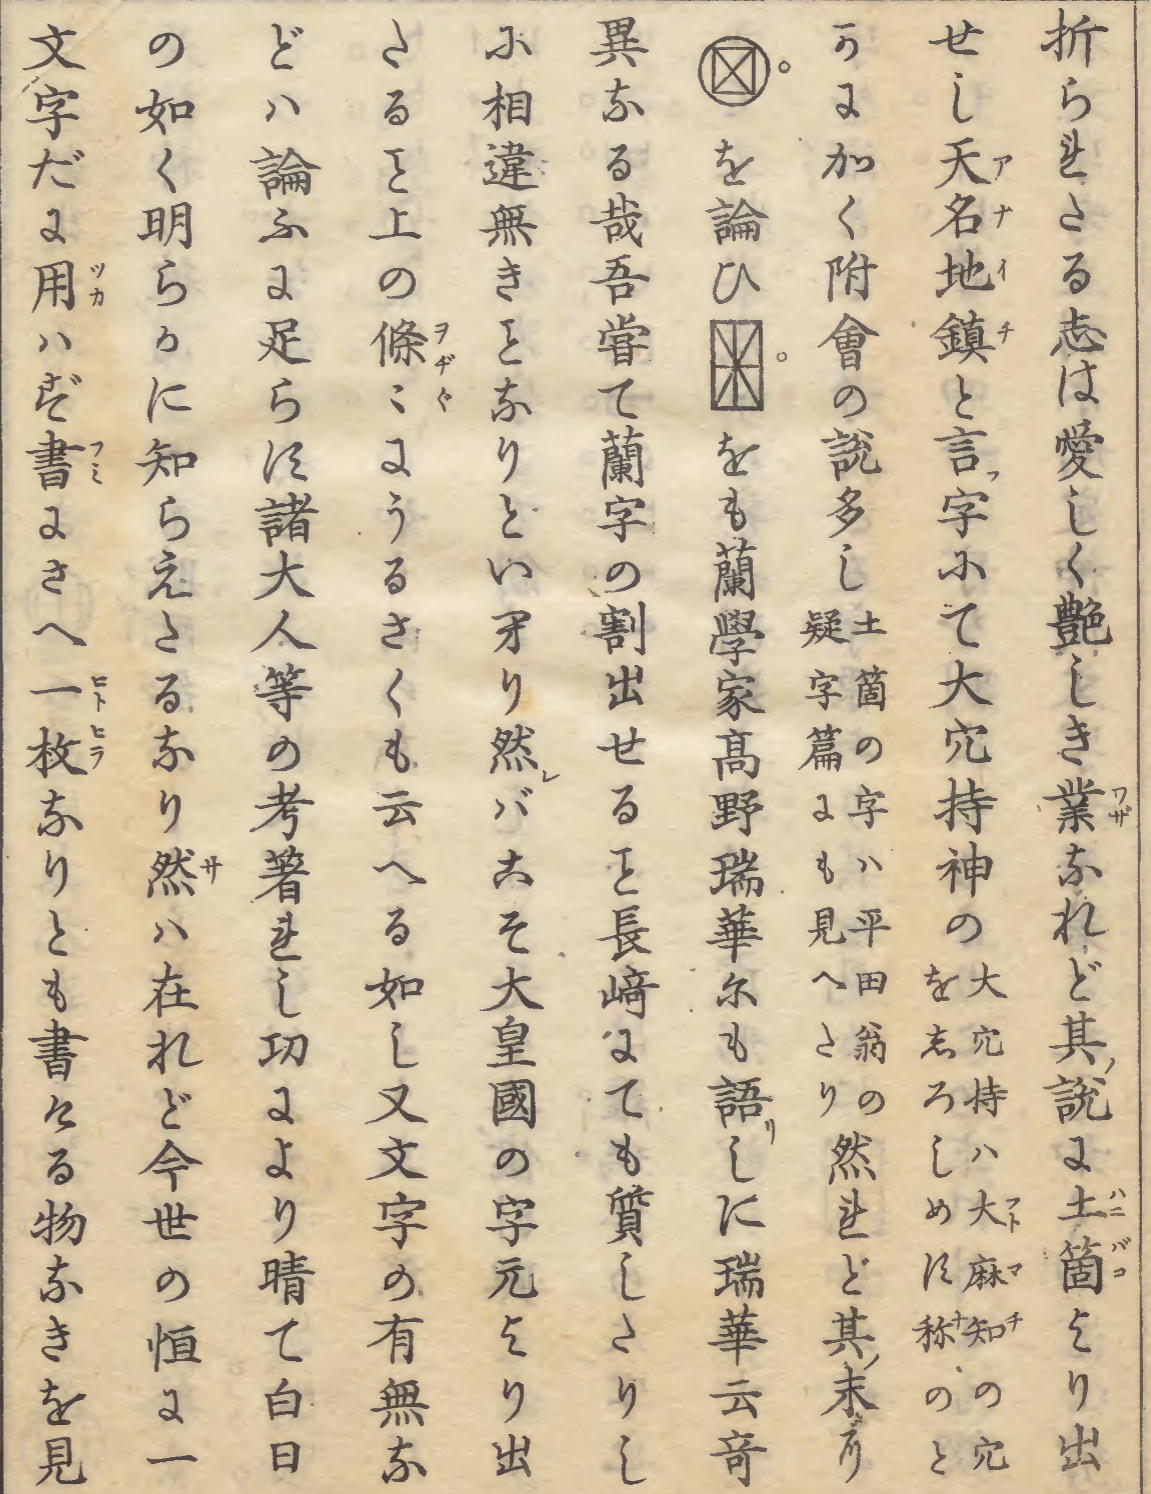 折られたる志は愛しく艶しき業なれど其ノ説に土箇より出
せし天名地鎮と言フ字にて大穴持神の大穴持ハ大麻知の穴をしろしめす称のと
かに加く附會の説多し土箇の字ハ平田翁の疑字篇にも見へたり然れど其ノ末
を論ひをも蘭學家高野瑞華尓も語リしに瑞華云奇
異なる哉吾甞て蘭字の割出せること長﨑にても質したりし
に相違無きことなりといへり然レバこそ大皇國の字元より出
たること上の條〻にうるさくも云へる如し又文字の有無な
どハ論ふに足らず諸大人等の考著れし功により晴て白日
の如く明らかに知らえたるなり然ハ在れど今世の恒に一
文字だに用ハず書にさへ一枚なりとも書ける物なきを見